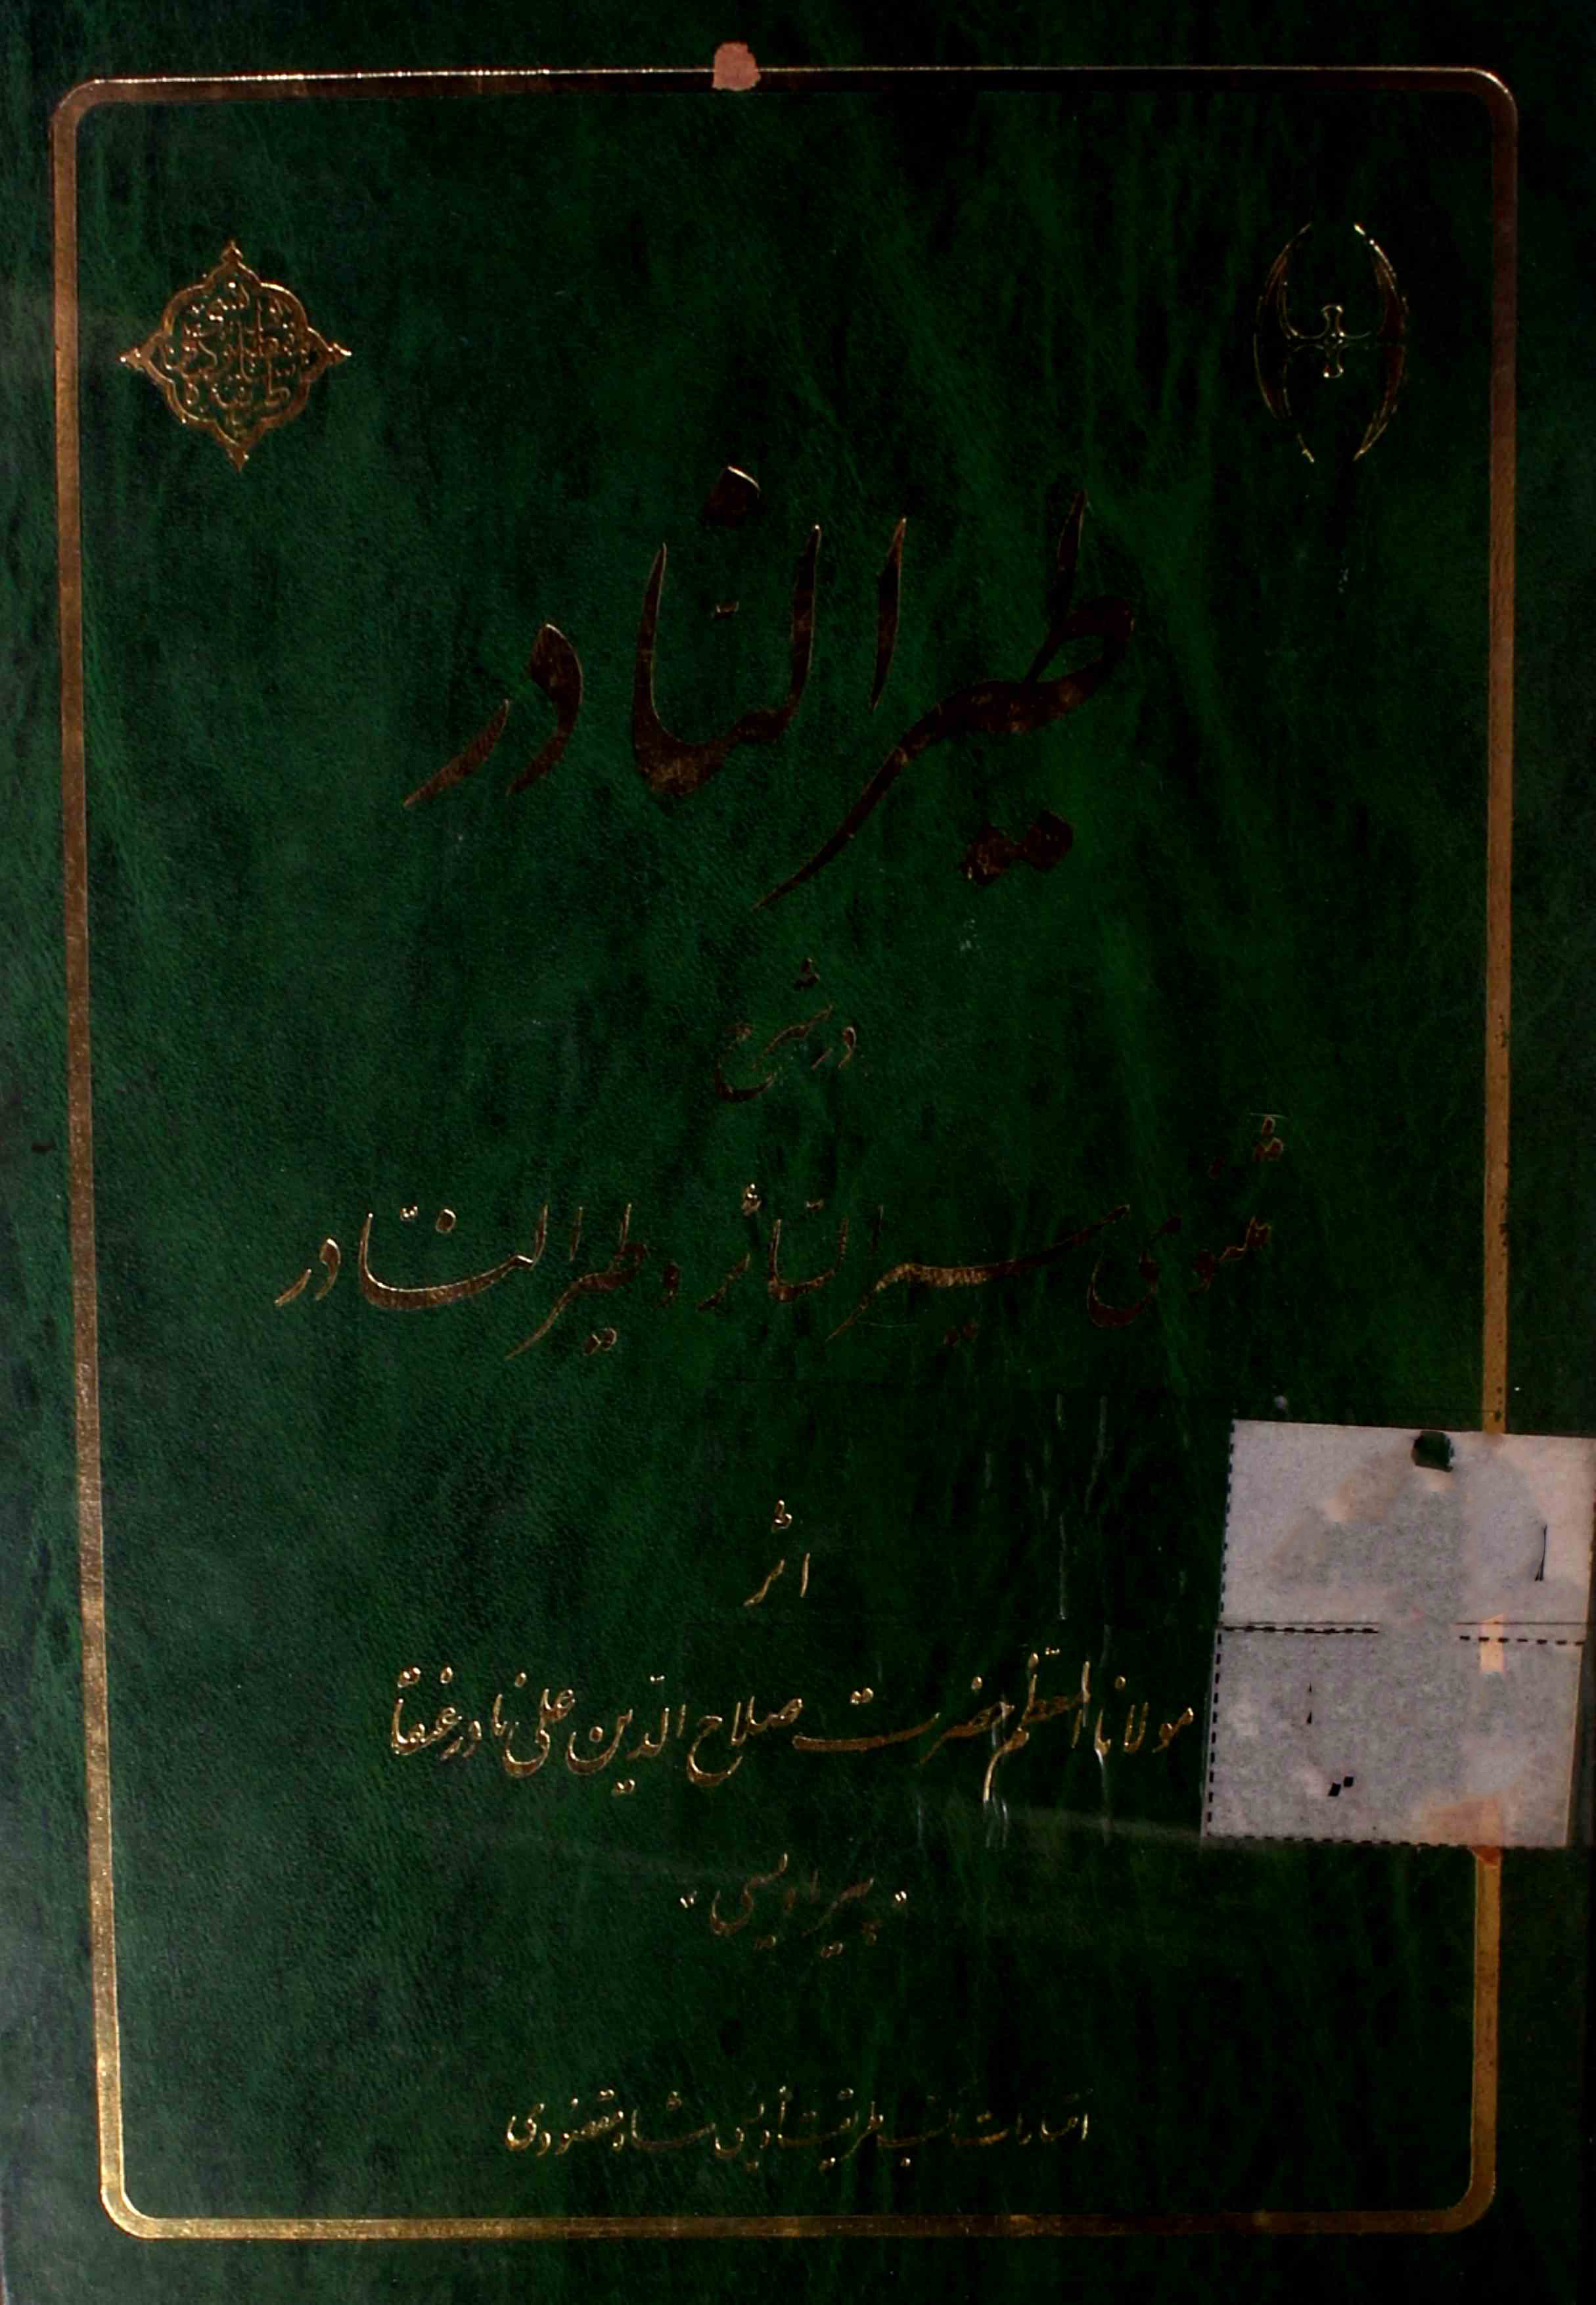 طیر النّادر
در شرح
مثنوی سیر السّائر و طیر النّادر
اثر
مولانا المعظّم حضرت صلاح الدّین علی نادر عنقا
" پیر اویسی "
انتشارات مکتب طریقت اویسی شاه مقصودی